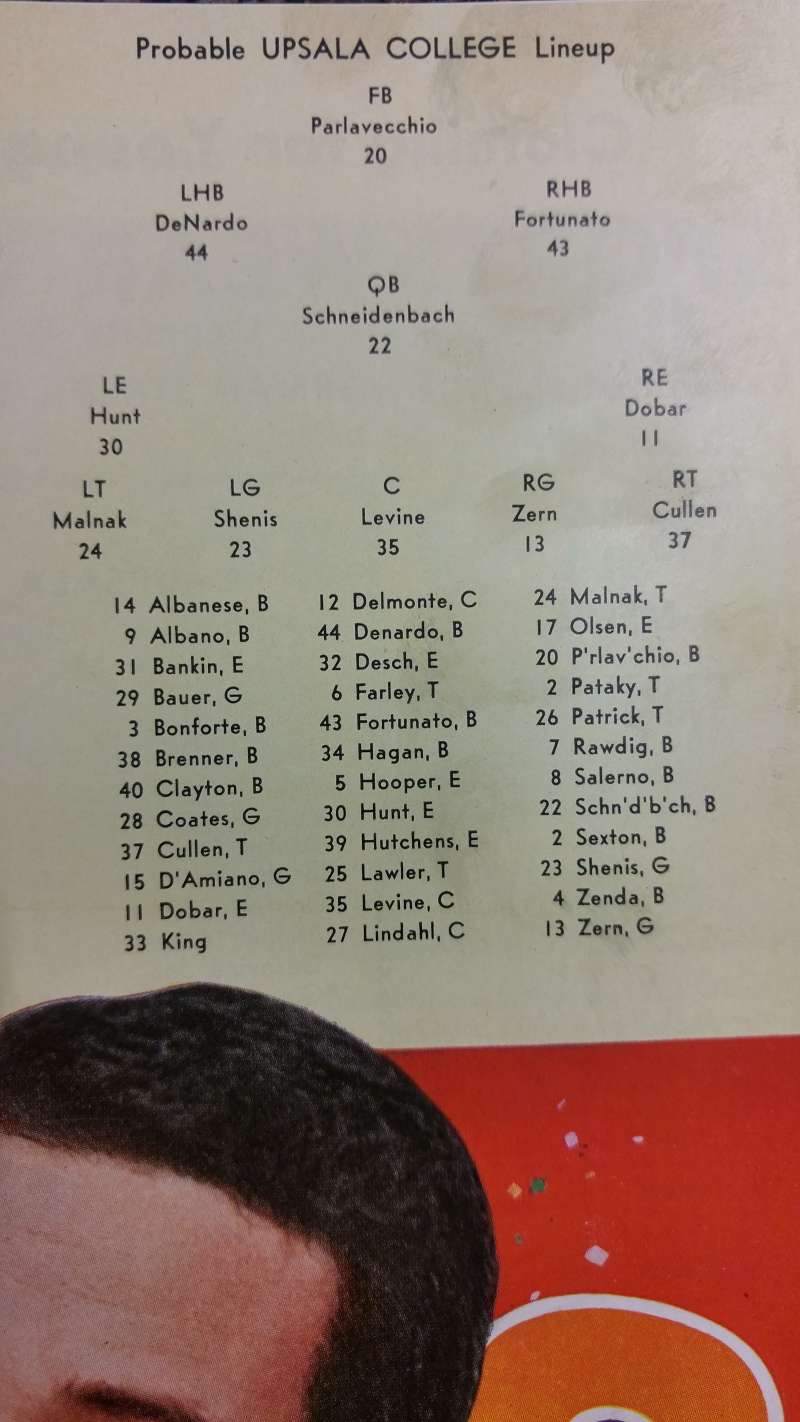 Probable UPSALA COLLEGE Lineup
FB
Parlavecchio
20
LHB RHB
DeNardo Fortunato
44 43
QB
Schneidenbach
22
LE RE
Hunt Dobar
30 11
LT LG C RG RT
Malnak Shenis Levine Zern Cullen
24 23 35 13 37
14 Albanese, B
9 Albano, B
31 Bankin, E
29 Bauer, G
3 Bonforte, B
38 Brenner, B
40 Clayton, B
28 Coates, G
37 Cullen, T
15 D'Amiano, G
11 Dobar, E
33 King
12 Delmonte, C
44 Denardo, B
32 Desch, E
6 Farley, T
43 Fortunato, B
34 Hagan, B
5 Hooper, E
30 Hunt, E
39 Hutchens, E
25 Lawler, T
35 Levine, C
27 Lindahl, C
24 Malnak, T
17 Olsen, E
20 P'rlav'chio, B
2 Pataky, T
26 Patrick, T
7 Rawdig, B
8 Salerno, B
22 Schn'd'b'ch, B
2 Sexton, B
23 Shenis, G
4 Zenda, B
13 Zern, G